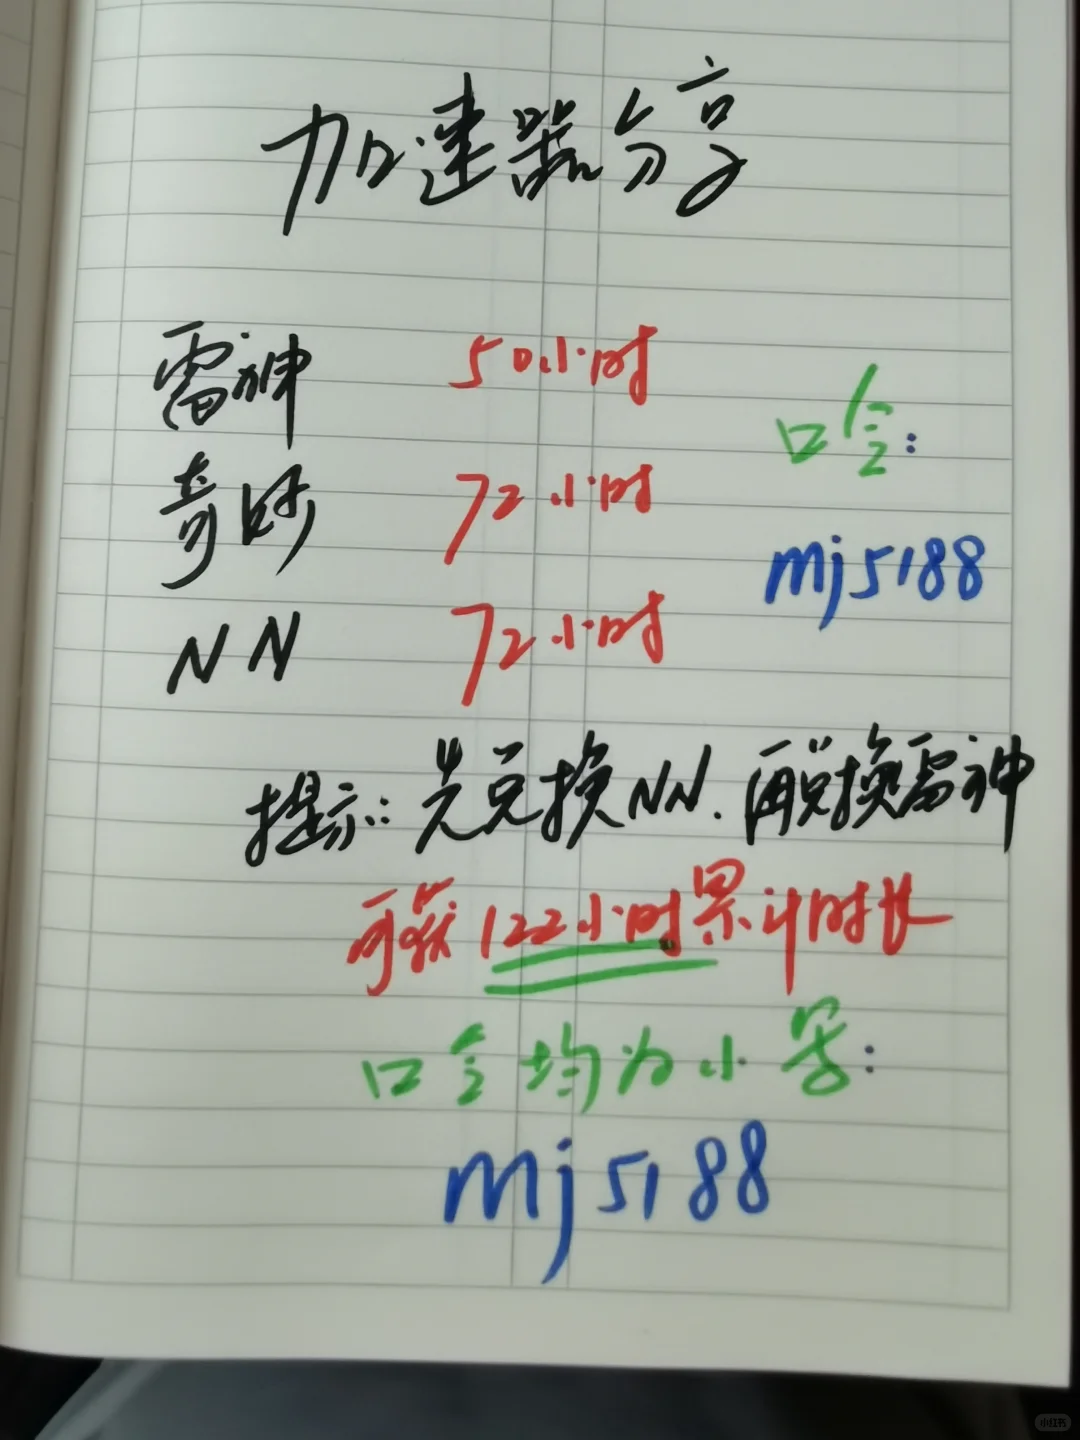 加速器分享
雷神 50小时
口令:
奇妙 72小时
mj5188
NN 72小时
提示:先兑换NN.再兑换雷神
可获122小时累计时长
口令均为小写:
mj5188
小红书